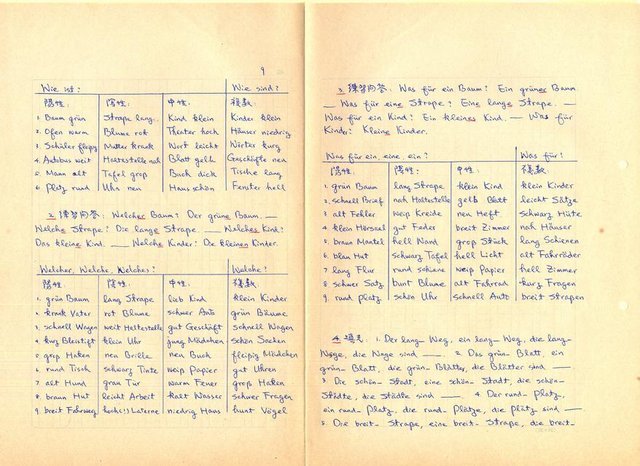 9
Wie ist? Wie sind?
陽性: 陰性: 中性: 複数:
1. Baum grün Straße lang Kind klein Kinder klein
2. Ofen warm Blume rot Theater hoch Häuser niedrig
3. Schüler fleißig Mutter krank Wort leicht Wörter kurz
4. Autobus weit Haltestelle nah Blatt gelb Geschäfte neu
5. Mann alt Tafel groß Buch dick Tische lang
6. Platz rund Uhr neu Haus schön Fenster hell
2. 練習问答: Welcher Baum? Der grüne Baum. —
Welche Straße? Die lange Straße. — Welches Kind?
Das kleine Kind. — Welche Kinder? Die kleinen Kinder.
Welcher, Welche, Welches? Welche?
陽性: 陰性: 中性: 複数:
1. grün Baum lang Straße lieb Kind klein Kinder
2. krank Vater rot Blume schwer Auto grün Bäume
3. schnell Wagen weit Haltestelle gut Geschäft schnell Wagen
4. kurz Bleistift klein Uhr jung Mädchen schön Sachen
5. groß Hafen neu Brille neu Buch fleißig Mädchen
6. rund Tisch schwarz Tinte weiß Papier gut Uhren
7. alt Hund grau Tür warm Feuer groß Hafen
8. braun Hut leicht Arbeit kalt Wasser schwer Fragen
9. breit Fahrweg hoch(!) Laterne niedrig Haus bunt Vögel
3. 練習问答: Was für ein Baum? Ein grüner Baum.
— Was für eine Straße? Eine lange Straße. —
Was für ein Kind? Ein kleines Kind. — Was für
Kinder? Kleine Kinder.
Was für ein, eine, ein? Was für?
陽性: 陰性: 中性: 複数:
1. grün Baum lang Straße klein Kind klein Kinder
2. schnell Brief nah Haltestelle gelb Blatt leicht Sätze
3. alt Fehler weiß Kreide neu Heft schwarz Hüte
4. klein Hörsaal gut Feder breit Zimmer nah Häuser
5. braun Mantel hell Wand groß Stück lang Schienen
6. blau Hut schwarz Tafel hell Licht alt Fahrräder
7. lang Flur rund Schiene weiß Papier hell Zimmer
8. schwer Satz bunt Blume alt Fahrrad kurz Fragen
9. rund Platz schön Uhr schnell Auto breit Straßen
4. 1. Der lang- Weg, ein lang- Weg, die lang-
Wege, die Wege sind —. 2. Das grün- Blatt, ein
grün- Blatt, die grün- Blätter, die Blätter sind —
3. Die schön- Stadt, eine schön- Stadt, die schön-
Städte, die Städte sind —. 4. Der rund- Platz,
ein rund- Platz, die rund- Plätze, die Plätze sind —
5. Die breit- Straße, eine breit- Straße, die breit-